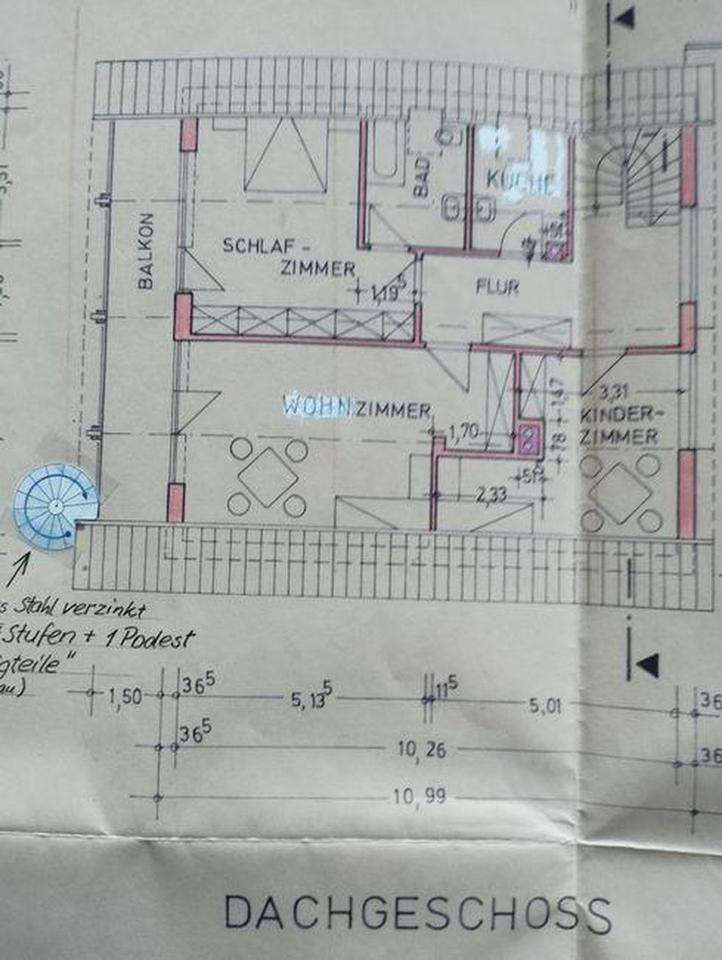 BAD
KÜCHE
BALKON
SCHLAF-
ZIMMER
1,19⁵
FLUR
WOHNZIMMER
1,70
1,47
78
3,31
KINDER-
ZIMMER
51⁵
2,33
s Stahl verzinkt
Stufen + 1 Podest
gteile"
au)
1,50
36⁵
5,13⁵
11⁵
5,01
36
36⁵
10,26
36
10,99
DACHGESCHOSS